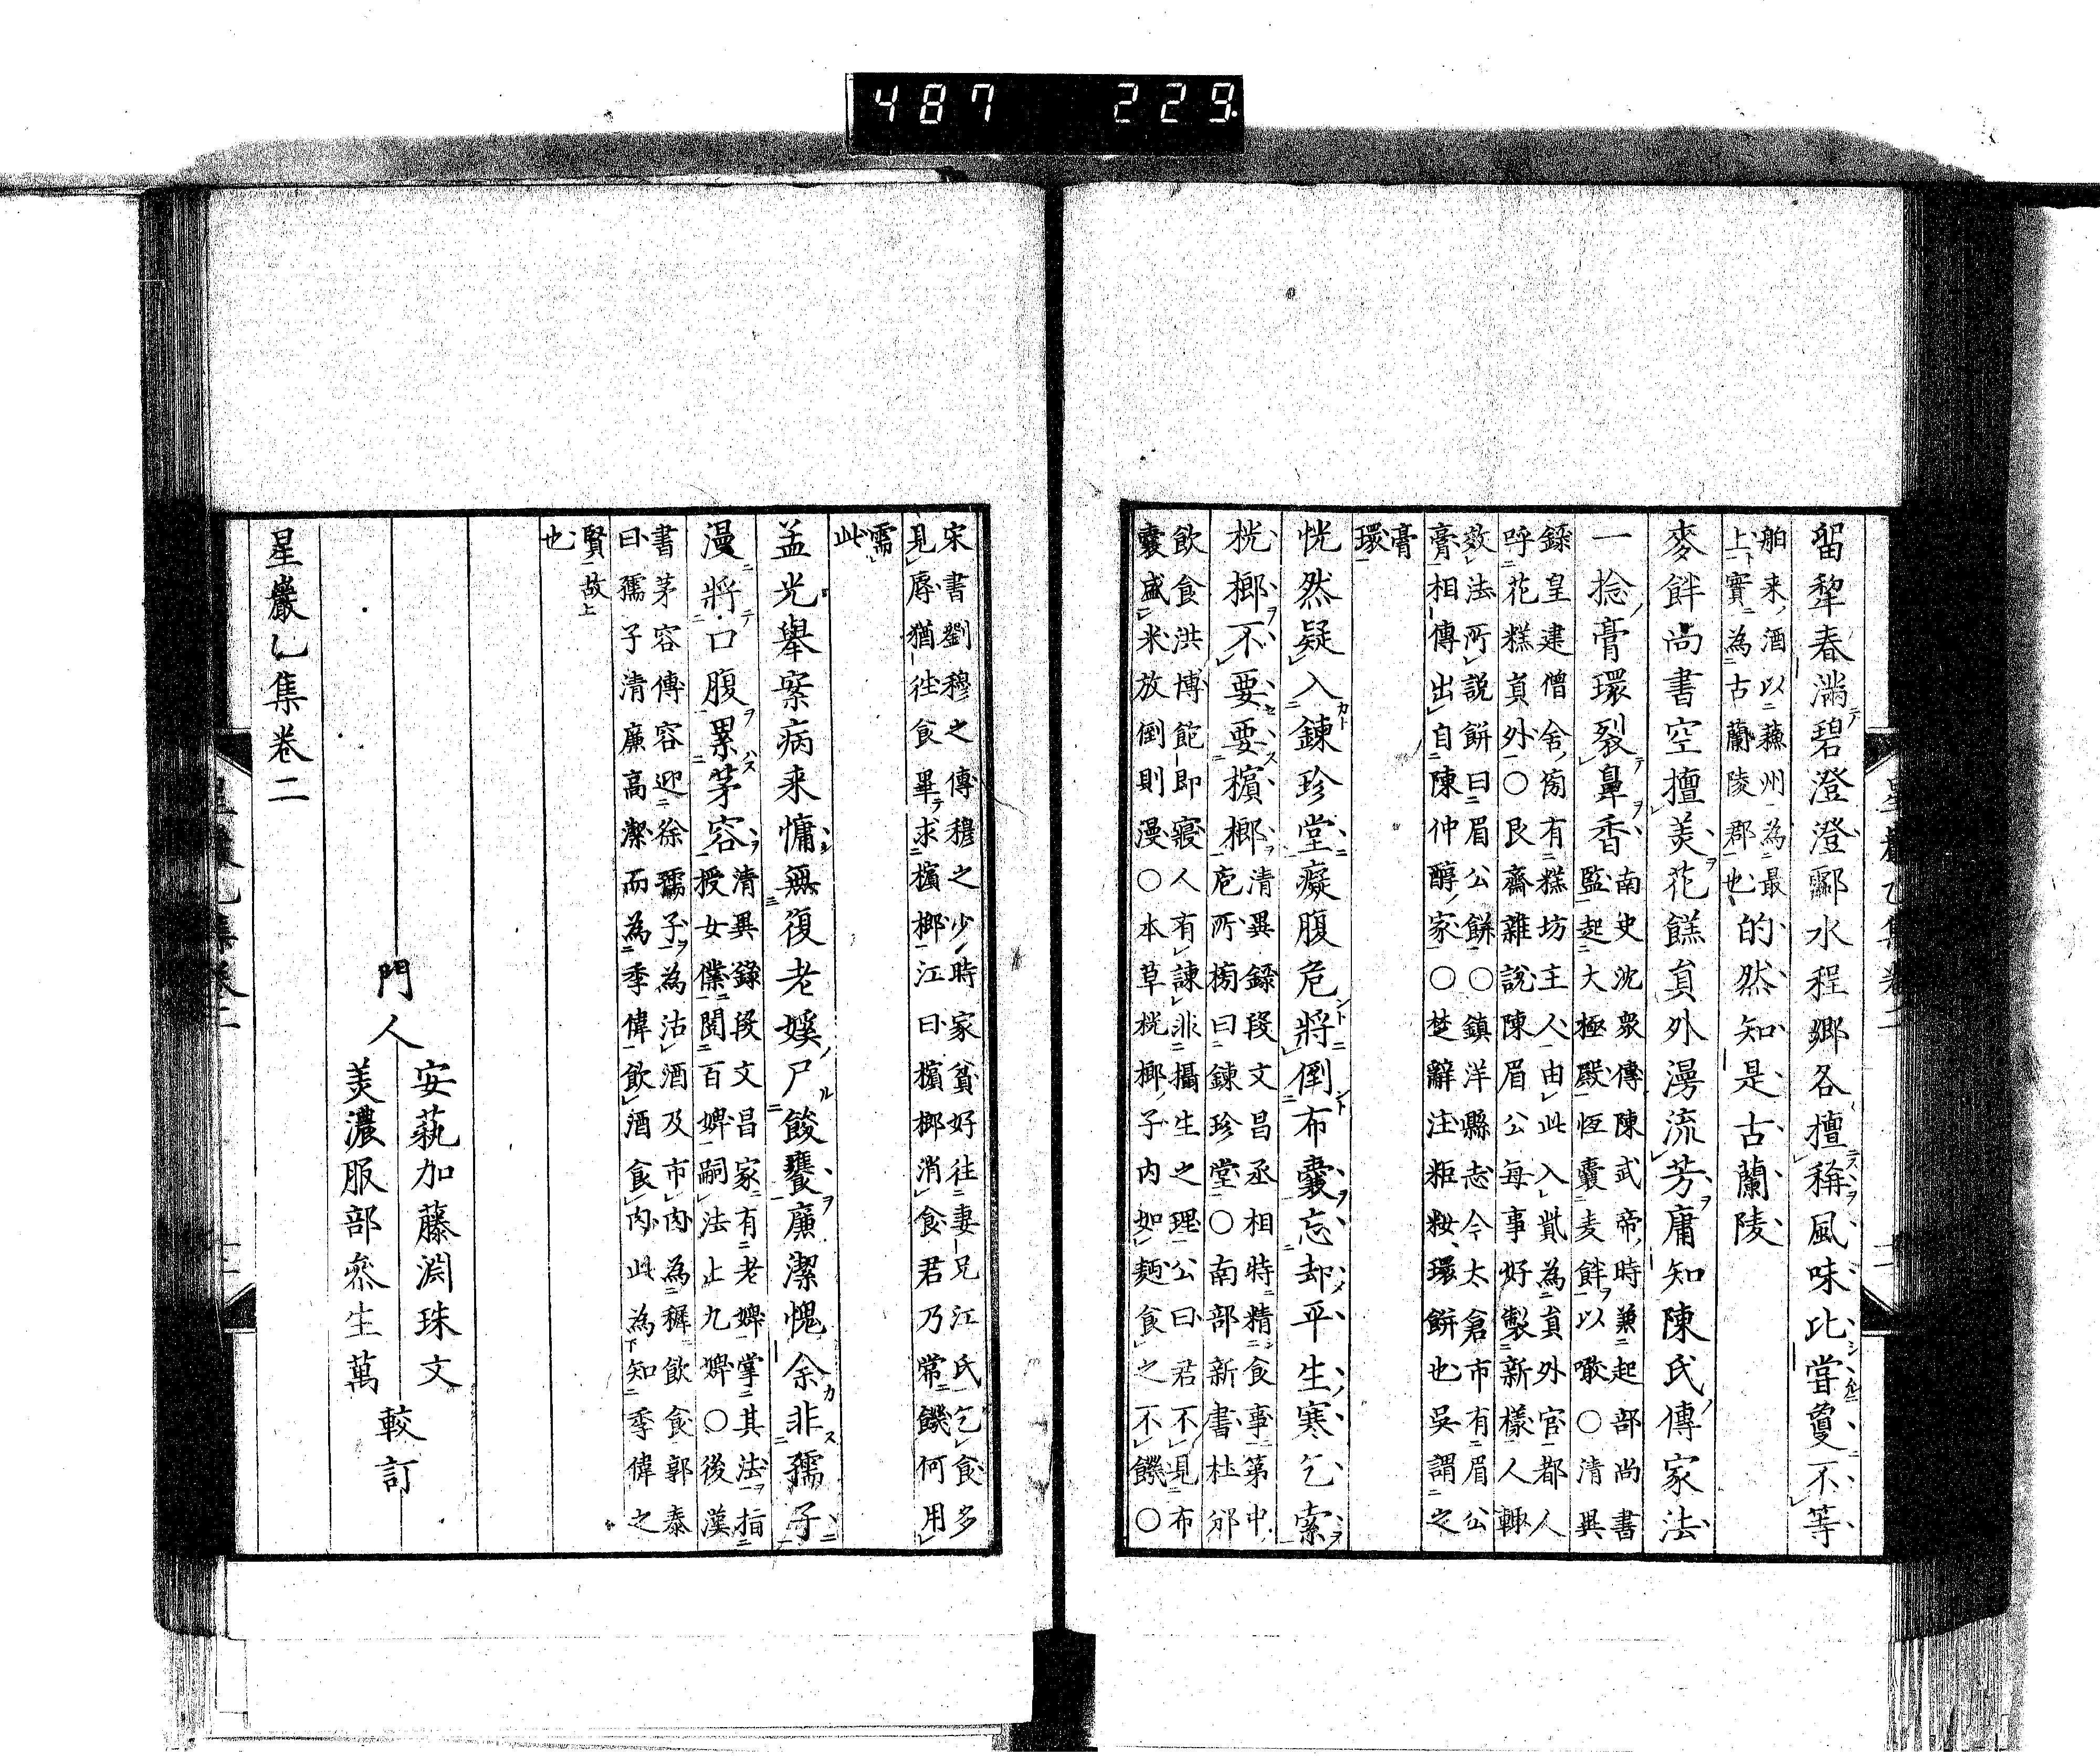 487 229
星巖乙集卷二
留犂春滿碧澄澄酃水程鄉各擅稱風味比嘗夐不等
舶来酒以蘓州為最
上實為古蘭陵郡也
的然知是古蘭陵
麥餅尚書空擅美花餻員外漫流芳庸知陳氏傳家法
一捻膏環裂鼻香
南史沈衆傳陳武帝時兼起部尚書
監起大極殿恆囊麦餅以噉○清異
錄皇建僧舍傍有糕坊主人由此入貲為員外官都人
呼花糕員外○艮齋雜說陳眉公每事好製新樣人輙
效法所說餅曰眉公餅○鎮洋縣志今太倉市有眉公
膏相傳出自陳仲醇家○楚辭注粔籹環餅也吳謂之
膏
環
恍然疑入鍊珍堂癡腹危將倒布囊忘却平生寒乞索
桄榔不要要檳榔
清異錄段文昌丞相特精食事第中
庖所榜曰鍊珍堂○南部新書杜邠
飲食洪博飽即寢人有諫非攝生之理公曰君不見布
囊盛米放倒則漫○本草桄榔子内如麪食之不饑○
宋書劉穆之傳穆之少時家貧好往妻兄江氏乞食多
見辱猶往食畢求檳榔江曰檳榔消食君乃常饑何用
需
此
孟光舉案病来慵無復老媛尸餕饔廉潔愧余非孺子
漫將口腹累茅容
清異錄段文昌家有老婢掌其法指
授女僕閱百婢嗣法止九婢○後漢
書茅容傳容迎徐孺子為沽酒及市肉為稺飲食郭泰
曰孺子清廉高潔而為季偉飲酒食肉此為知季偉之
賢故
也
門人
安蓺加藤淵珠文
美濃服部叅生萬
較訂
星巖乙集卷二